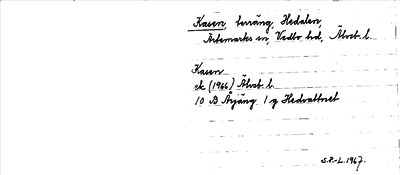 Kasen, terräng, Hedalen,
Årtemarks sn, Vedbo hd, Älvsb. l.
Kasen
ek (1966) Älvsb. l.
10 B Årjäng 1 g Hedvattnet
S.P.-L. 1967.